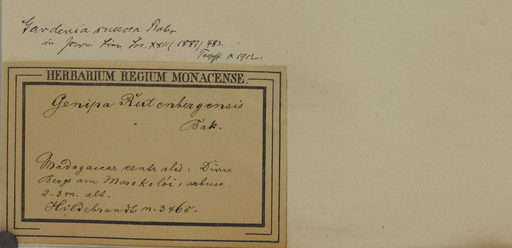 Gardenia succosa Baker
in Journ. Linn. Soc. XXII (1887) 482.
1912.
HERBARIUM REGIUM MONACENSE.
Genipa Rutenbergensis
Bak.
Madagascar centralis: Dürre
Berge am Marokolói, arbusc.
2-3 m. alt.
Hildebrandt n. 3465.